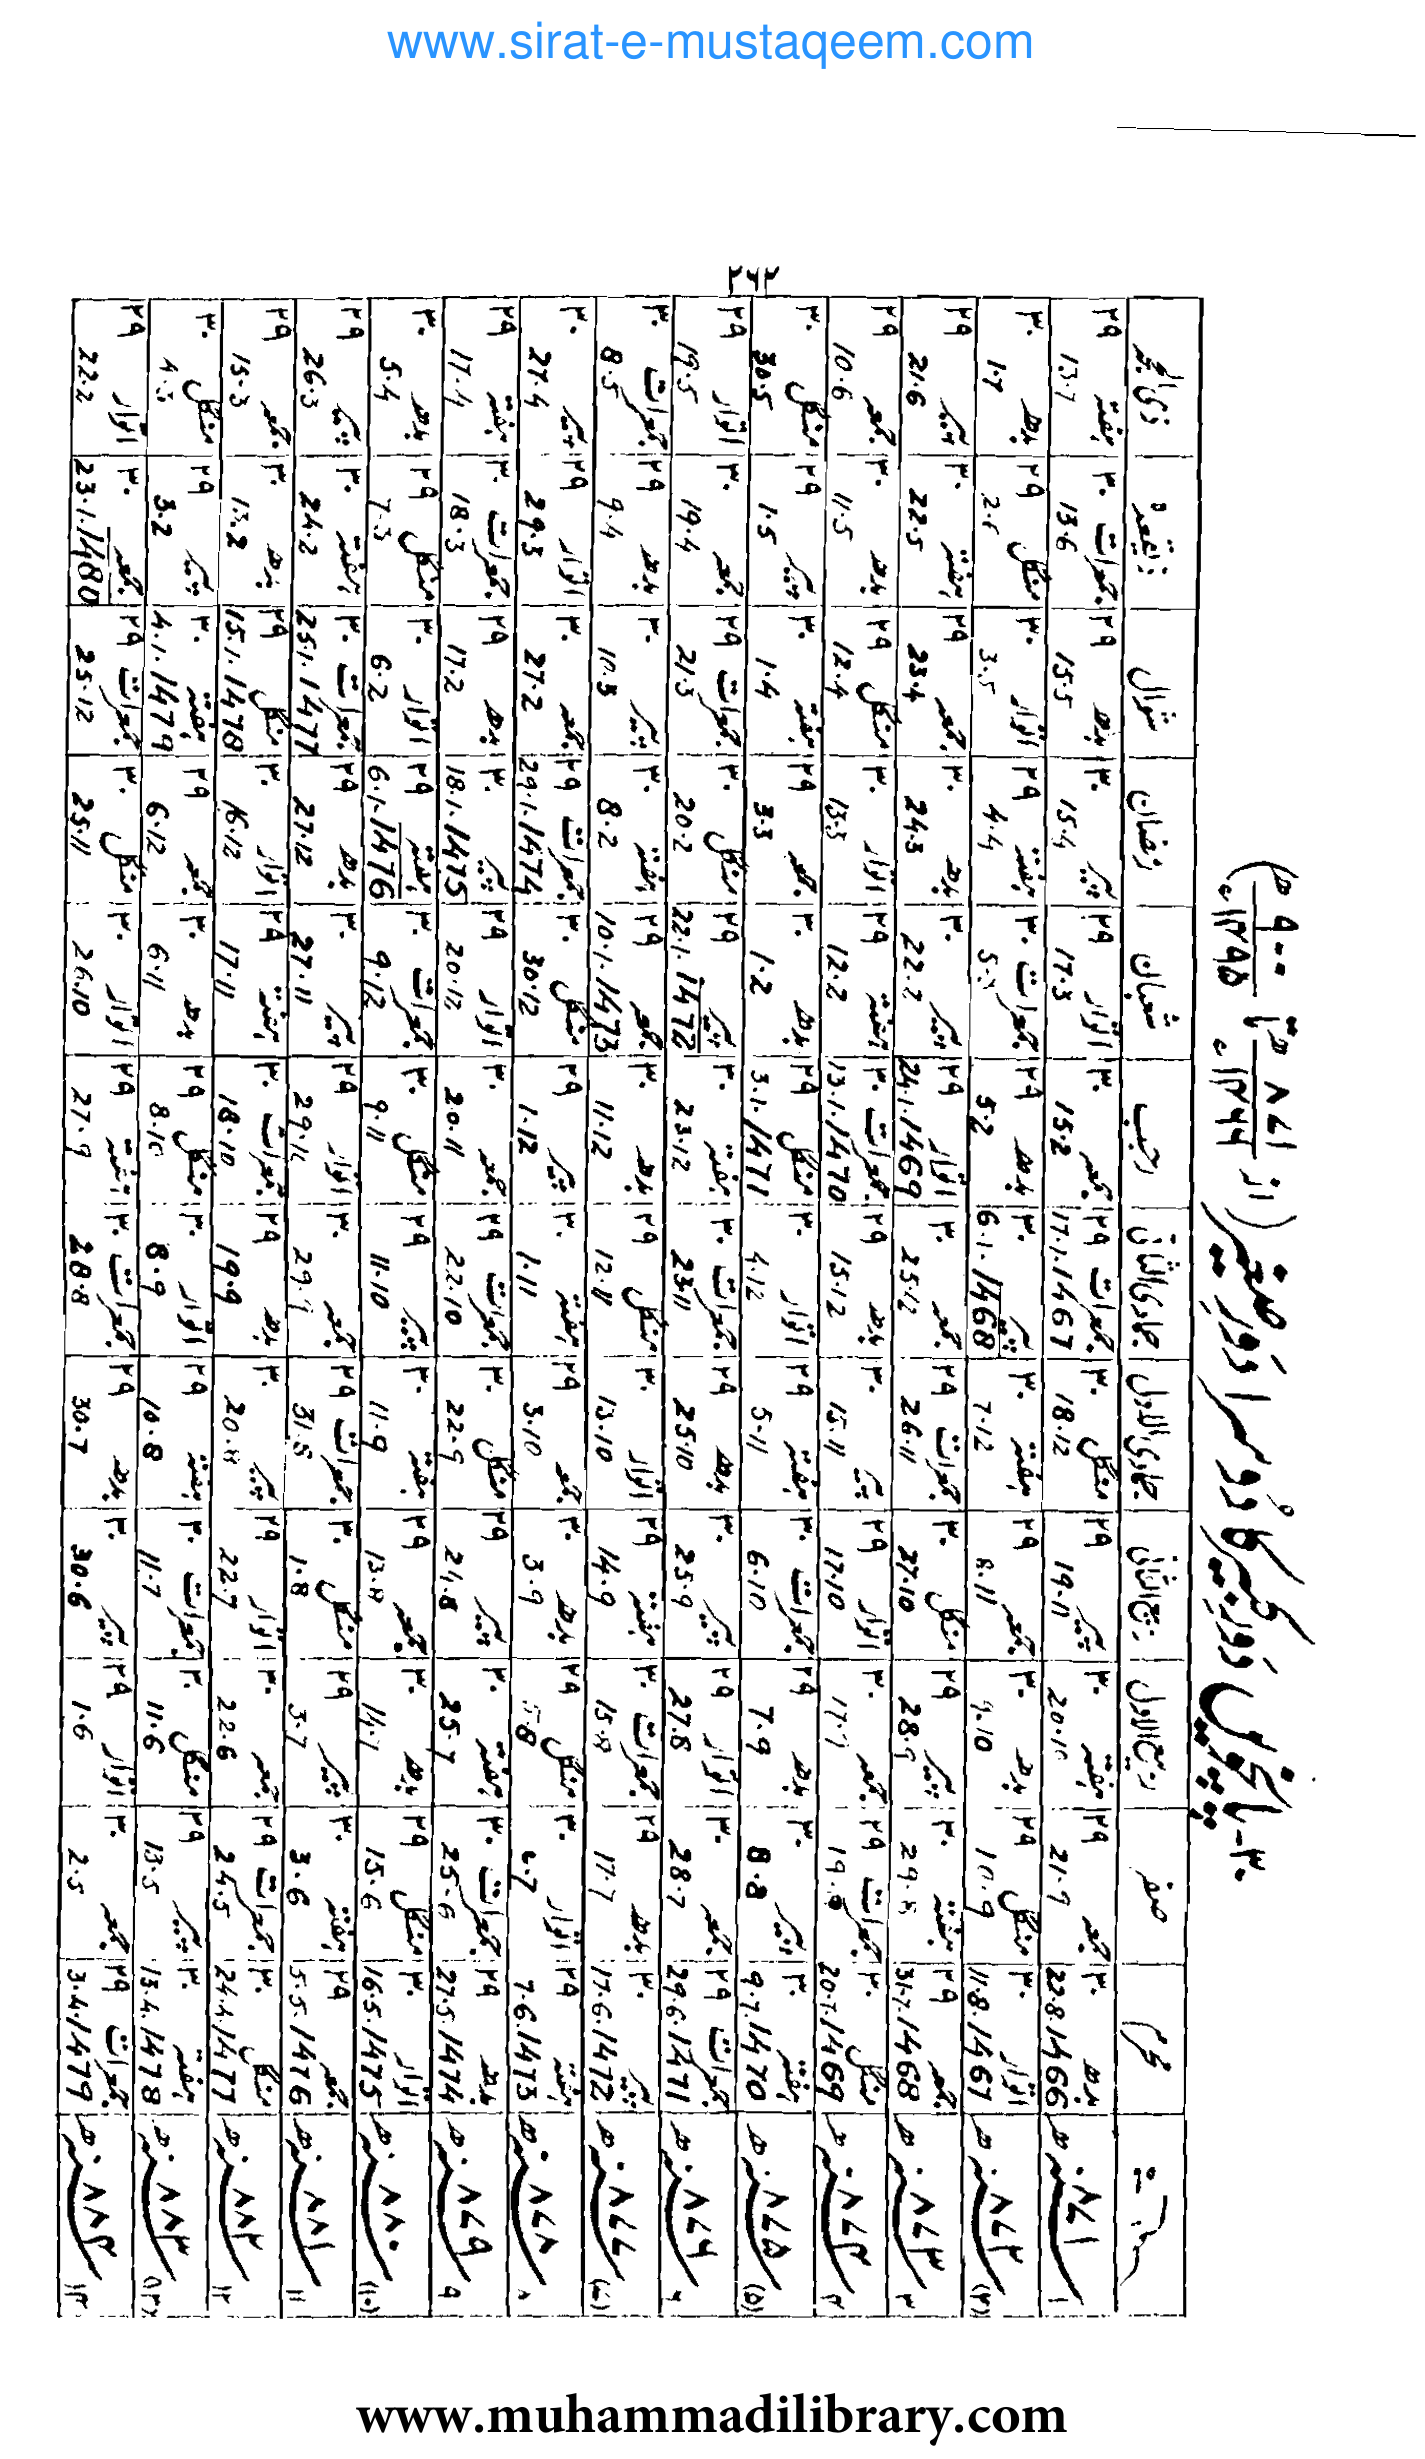 www.sirat-e-mustaqeem.com
۲۶۲
سنہ محرم صفر ربیع الاول ربیع الثانی جمادی الاول جمادی الثانی رجب شعبان رمضان شوال ذیقعدہ ذی الحجہ
۱ سنہ ۸۷۱ ھ بدھ ۳۰ 22.8.1466 جمعہ ۲۹ 21.9 ہفتہ ۳۰ 20.10 پیر ۲۹ 19.11 منگل ۳۰ 18.12 جمعرات ۲۹ 17.1.1467 جمعہ ۳۰ 15.2 اتوار ۲۹ 17.3 پیر ۳۰ 15.4 بدھ ۲۹ 15.5 جمعرات ۳۰ 13.6 ہفتہ ۲۹ 13.7
(۲) سنہ ۸۷۲ ھ اتوار ۳۰ 11.8.1467 منگل ۲۹ 10.9 بدھ ۳۰ 9.10 جمعہ ۲۹ 8.11 ہفتہ ۳۰ 7.12 پیر ۳۰ 6.1.1468 بدھ ۲۹ 5.2 جمعرات ۳۰ ہفتہ ۲۹ 4.4 اتوار ۳۰ 3.5 منگل ۲۹ بدھ ۳۰ 1.7
۳ سنہ ۸۷۳ ھ جمعہ ۲۹ 31.7.1468 ہفتہ ۳۰ 29.8 پیر ۲۹ 28.9 منگل ۳۰ 27.10 جمعرات ۲۹ 26.11 جمعہ ۳۰ 25.12 اتوار ۲۹ 24.1.1469 پیر ۳۰ 22.2 بدھ ۳۰ 24.3 جمعہ ۲۹ 23.4 ہفتہ ۳۰ 22.5 پیر ۲۹ 21.6
۴ سنہ ۸۷۴ ھ منگل ۳۰ 20.7.1469 جمعرات ۲۹ جمعہ ۳۰ اتوار ۲۹ 17.10 پیر ۳۰ 15.11 بدھ ۲۹ 15.12 جمعرات ۳۰ 13.1.1470 ہفتہ ۲۹ 12.2 اتوار ۳۰ 13.3 منگل ۲۹ 12.4 بدھ ۳۰ 11.5 جمعہ ۲۹ 10.6
(۵) سنہ ۸۷۵ ھ ہفتہ ۳۰ 9.7.1470 پیر ۳۰ 8.8 بدھ ۲۹ 7.9 جمعرات ۳۰ 6.10 ہفتہ ۲۹ 5.11 اتوار ۳۰ 4.12 منگل ۲۹ 3.1.1471 بدھ ۳۰ 1.2 جمعہ ۲۹ 3.3 ہفتہ ۳۰ 1.4 پیر ۳۰ 1.5 منگل ۳۰ 30.5
۶ سنہ ۸۷۶ ھ جمعرات ۲۹ 29.6.1471 جمعہ ۳۰ 28.7 اتوار ۲۹ 27.8 پیر ۳۰ 25.9 بدھ ۲۹ 25.10 جمعرات ۳۰ 23.11 ہفتہ ۳۰ 23.12 پیر ۲۹ 22.1.1472 منگل ۳۰ 20.2 جمعرات ۲۹ 21.3 جمعہ ۳۰ 19.4 اتوار ۲۹ 19.5
(۷) سنہ ۸۷۷ ھ پیر ۳۰ 17.6.1472 بدھ ۲۹ 17.7 جمعرات ۳۰ 15.8 ہفتہ ۲۹ 14.9 اتوار ۳۰ 13.10 منگل ۲۹ 12.11 بدھ ۳۰ 11.12 جمعہ ۲۹ 10.1.1473 ہفتہ ۳۰ 8.2 پیر ۳۰ 10.3 بدھ ۲۹ 9.4 جمعرات ۳۰ 8.5
۸ سنہ ۸۷۸ ھ ہفتہ ۲۹ 7.6.1473 اتوار ۳۰ 6.7 منگل ۲۹ بدھ ۳۰ 3.9 جمعہ ۲۹ 3.10 ہفتہ ۳۰ 1.11 پیر ۲۹ 1.12 منگل ۳۰ 30.12 جمعرات ۲۹ 29.1.1474 جمعہ ۳۰ 27.2 اتوار ۲۹ 29.3 پیر ۳۰ 27.4
۹ سنہ ۸۷۹ ھ بدھ ۲۹ 27.5.1474 جمعرات ۳۰ 25.6 ہفتہ ۳۰ 25.7 پیر ۲۹ 24.8 منگل ۳۰ 22.9 جمعرات ۲۹ 22.10 جمعہ ۳۰ 20.11 اتوار ۲۹ 20.12 پیر ۳۰ 18.1.1475 بدھ ۲۹ 17.2 جمعرات ۳۰ 18.3 ہفتہ ۲۹ 17.4
(۱۰) سنہ ۸۸۰ ھ اتوار ۳۰ 16.5.1475 منگل ۲۹ 15.6 بدھ ۳۰ 14.7 جمعہ ۲۹ 13.8 ہفتہ ۳۰ 11.9 پیر ۲۹ 11.10 منگل ۳۰ 9.11 جمعرات ۳۰ 9.12 ہفتہ ۲۹ 6.1.1476 اتوار ۳۰ 6.2 منگل ۲۹ 7.3 بدھ ۳۰ 5.4
۱۱ سنہ ۸۸۱ ھ جمعہ ۲۹ 5.5.1476 ہفتہ ۳۰ 3.6 پیر ۲۹ 3.7 منگل ۳۰ 1.8 جمعرات ۲۹ 31.8 جمعہ ۳۰ 29.9 اتوار ۲۹ پیر ۳۰ 27.11 بدھ ۲۹ 27.12 جمعرات ۳۰ 25.1.1477 ہفتہ ۳۰ 24.2 پیر ۲۹ 26.3
۱۲ سنہ ۸۸۲ ھ منگل ۳۰ 24.4.1477 جمعرات ۲۹ 24.5 جمعہ ۳۰ 22.6 اتوار ۲۹ 22.7 پیر ۳۰ 20.8 بدھ ۲۹ 19.9 جمعرات ۳۰ 18.10 ہفتہ ۲۹ 17.11 اتوار ۳۰ 16.12 منگل ۲۹ 15.1.1478 بدھ ۳۰ 13.2 جمعہ ۲۹ 15.3
(۱۳) سنہ ۸۸۳ ھ ہفتہ ۳۰ 13.4.1478 پیر ۲۹ 13.5 منگل ۳۰ 11.6 جمعرات ۳۰ 11.7 ہفتہ ۲۹ 10.8 اتوار ۳۰ 8.9 منگل ۲۹ 8.10 بدھ ۳۰ 6.11 جمعہ ۲۹ 6.12 ہفتہ ۳۰ 4.1.1479 پیر ۲۹ 3.2 منگل ۳۰
۱۴ سنہ ۸۸۴ ھ جمعرات ۲۹ 3.4.1479 جمعہ ۳۰ 2.5 اتوار ۲۹ 1.6 پیر ۳۰ 30.6 بدھ ۲۹ 30.7 جمعرات ۳۰ 28.8 ہفتہ ۲۹ 27.9 اتوار ۳۰ 26.10 منگل ۳۰ 25.11 جمعرات ۲۹ 25.12 جمعہ ۳۰ 23.1.1480 اتوار ۲۹ 22.2
www.muhammadilibrary.com